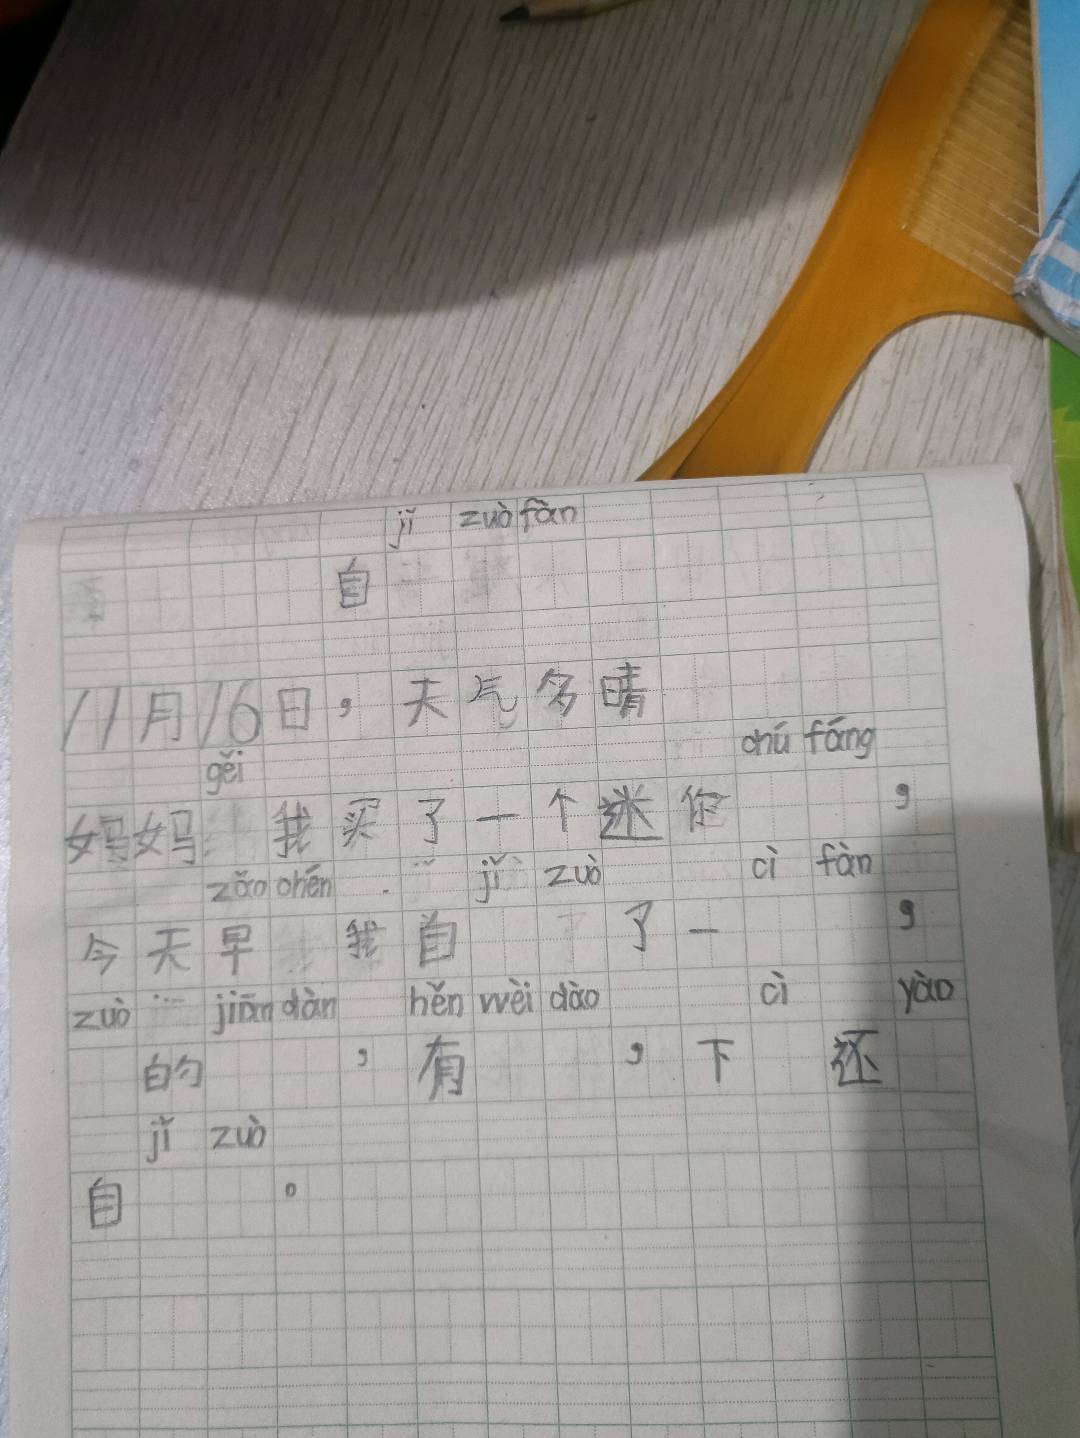 jǐ zuò fàn
自
11月16日，天气多晴
gěi chú fáng
妈妈 我买了一个迷你 ，
zǎo chén jǐ zuò cì fàn
今天早 我自 了一 ，
zuò jiān dàn hěn wèi dào cì yào
的 ，有 ，下 还
jǐ zuò
自 。